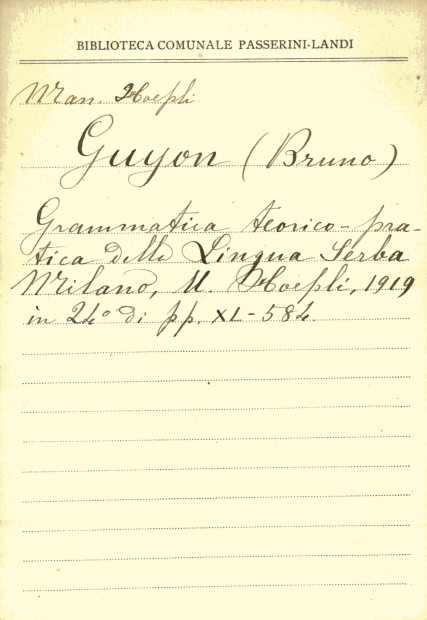 BIBLIOTECA COMUNALE PASSERINI-LANDI
Man. Hoepli
Guyon (Bruno)
Grammatica teorico-pra-
tica della Lingua Serba
Milano, U. Hoepli, 1919
in 24° di pp. XL-584.